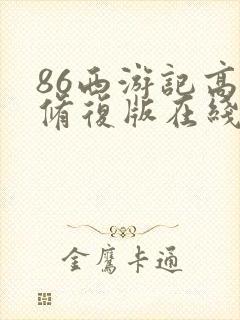 86西游记高
修復版在綫
金鷹卡通